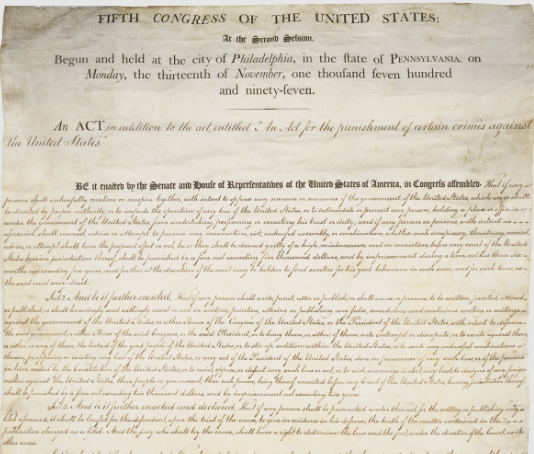 FIFTH CONGRESS OF THE UNITED STATES:
At the Second Session.
Begun and held at the city of Philadelphia, in the state of PENNSYLVANIA, on
Monday, the thirteenth of November, one thousand seven hundred
and ninety-seven.
An ACT in addition to the act, entitled "An Act for the punishment of certain crimes against
the United States."
BE it enacted by the Senate and House of Representatives of the United States of America, in Congress assembled. That if any
persons shall unlawfully combine or conspire together, with intent to oppose any measure or measures of the government of the United States, which are or shall
be directed by proper authority, or to impede the operation of any law of the United States, or to intimidate or prevent any person, holding a place or office in or
under the government of the United States, from undertaking, performing or executing his trust or duty; and if any person or persons, with intent as
aforesaid, shall counsel, advise or attempt to procure any insurrection, riot, unlawful assembly, or combination, whether such conspiracy, threatening, counsel,
advice, or attempt shall have the proposed effect or not, he or they shall be deemed guilty of a high misdemeanor, and on conviction, before any court of the United
States having jurisdiction thereof, shall be punished by a fine not exceeding five thousand dollars, and by imprisonment during a term not less than six
months nor exceeding five years; and further, at the discretion of the court may be holden to find sureties for his good behaviour in such sum, and for such time, as
the said court may direct.
Sect. 2. And be it further enacted, That if any person shall write, print, utter or publish, or shall cause or procure to be written, printed, uttered
or published, or shall knowingly and willingly assist or aid in writing, printing, uttering or publishing any false, scandalous and malicious writing or writings
against the government of the United States, or either House of the Congress of the United States, or the President of the United States, with intent to defame
the said government, or either House of the said Congress, or the said President, or to bring them, or either of them, into contempt or disrepute; or to excite against them,
or either or any of them, the hatred of the good people of the United States, or to stir up sedition within the United States, or to excite any unlawful combinations
therein, for opposing or resisting any law of the United States, or any act of the President of the United States, done in pursuance of any such law, or of the powers
in him vested by the constitution of the United States, or to resist, oppose, or defeat any such law or act, or to aid, encourage or abet any hostile designs of any foreign
nation against the United States, their people or government, then such person, being thereof convicted before any court of the United States having jurisdiction thereof,
shall be punished by a fine not exceeding two thousand dollars, and by imprisonment not exceeding two years.
Sect. 3. And be it further enacted and declared, That if any person shall be prosecuted under this act, for the writing or publishing any
libel aforesaid, it shall be lawful for the defendant, upon the trial of the cause, to give in evidence in his defence, the truth of the matter contained in the
publication charged as a libel. And the jury who shall try the cause, shall have a right to determine the law and the fact, under the direction of the court, as in
other cases.